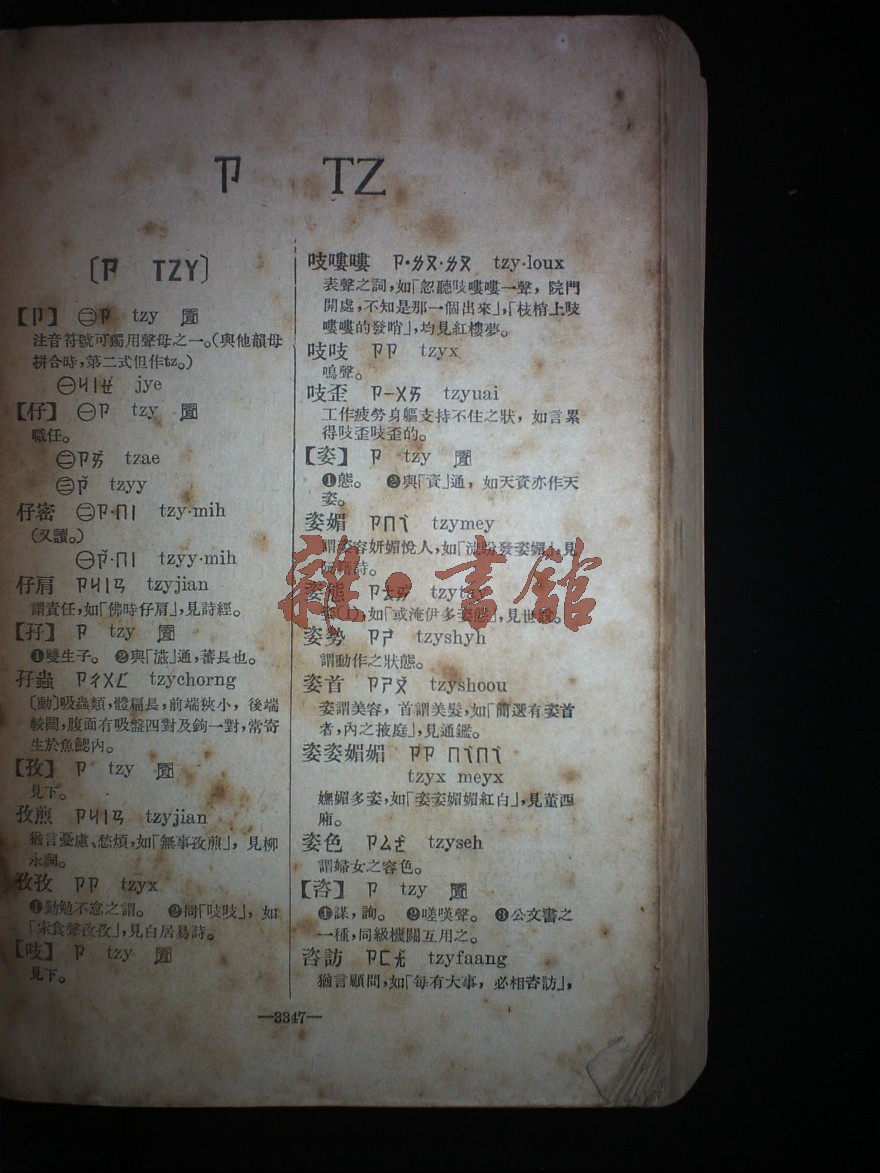 ㄗ TZ
〔ㄗ TZY〕
【ㄗ】 ㊁ㄗ tzy
注音符號可獨用聲母之一。(與他韻母
拼合時,第二式但作tz。)
㊀ㄐㄧㄝ jye
【仔】 ㊀ㄗ tzy
職任。
㊁ㄗㄞ tzae
㊂ㄗˇ tzyy
仔密 ㊁ㄗ·ㄇㄧ tzy·mih
(又讀。)
㊀ㄗˇ·ㄇㄧ tzyy·mih
仔肩 ㄗㄐㄧㄢ tzyjian
謂責任,如「佛時仔肩」,見詩經。
【孖】 ㄗ tzy
❶雙生子。 ❷與「滋」通,蕃長也。
孖蟲 ㄗㄔㄨㄥ tzychorng
〔動〕吸蟲類,體扁長,前端狹小,後端
較闊,腹面有吸盤四對及鉤一對,常寄
生於魚鰓內。
【孜】 ㄗ tzy
見下。
孜煎 ㄗㄐㄧㄢ tzyjian
猶言憂慮、愁煩,如「無事孜煎」,見柳
永詞。
孜孜 ㄗㄗ tzyx
❶勤勉不怠之謂。 ❷同「吱吱」,如
「宋食聲孜孜」,見白居易詩。
【吱】 ㄗ tzy
見下。
吱嘍嘍 ㄗ·ㄌㄡ·ㄌㄡ tzy·loux
表聲之詞,如「忽聽吱嘍嘍一聲,院門
開處,不知是那一個出來」,「枝梢上吱
嘍嘍的發哨」,均見紅樓夢。
吱吱 ㄗㄗ tzyx
鳴聲。
吱歪 ㄗ-ㄨㄞ tzyuai
工作疲勞身軀支持不住之狀,如言累
得吱歪吱歪的。
【姿】 ㄗ tzy
❶態。 ❷與「資」通,如天資亦作天
姿。
姿媚 ㄗㄇㄟˋ tzymey
謂姿容妍媚悅人,如「流盼發姿媚」,見
阮籍詩。
姿態 ㄗㄊㄞ tzytay
姿(1),如「或淹伊多姿態」,見世說。
姿勢 ㄗㄕˋ tzyshyh
謂動作之狀態。
姿首 ㄗㄕㄡˇ tzyshoou
姿謂美容,首謂美髮,如「簡選有姿首
者,內之掖庭」,見通鑑。
姿姿媚媚 ㄗㄗ ㄇㄟˋㄇㄟˋ
tzyx meyx
嫵媚多姿,如「姿姿媚媚紅白」,見董西
廂。
姿色 ㄗㄙㄜˋ tzyseh
謂婦女之容色。
【咨】 ㄗ tzy
❶謀,詢。 ❷嗟嘆聲。 ❸公文書之
一種,同級機關互用之。
咨訪 ㄗㄈㄤˇ tzyfaang
猶言顧問,如「每有大事,必相咨訪」,
—3347—
雜·書館